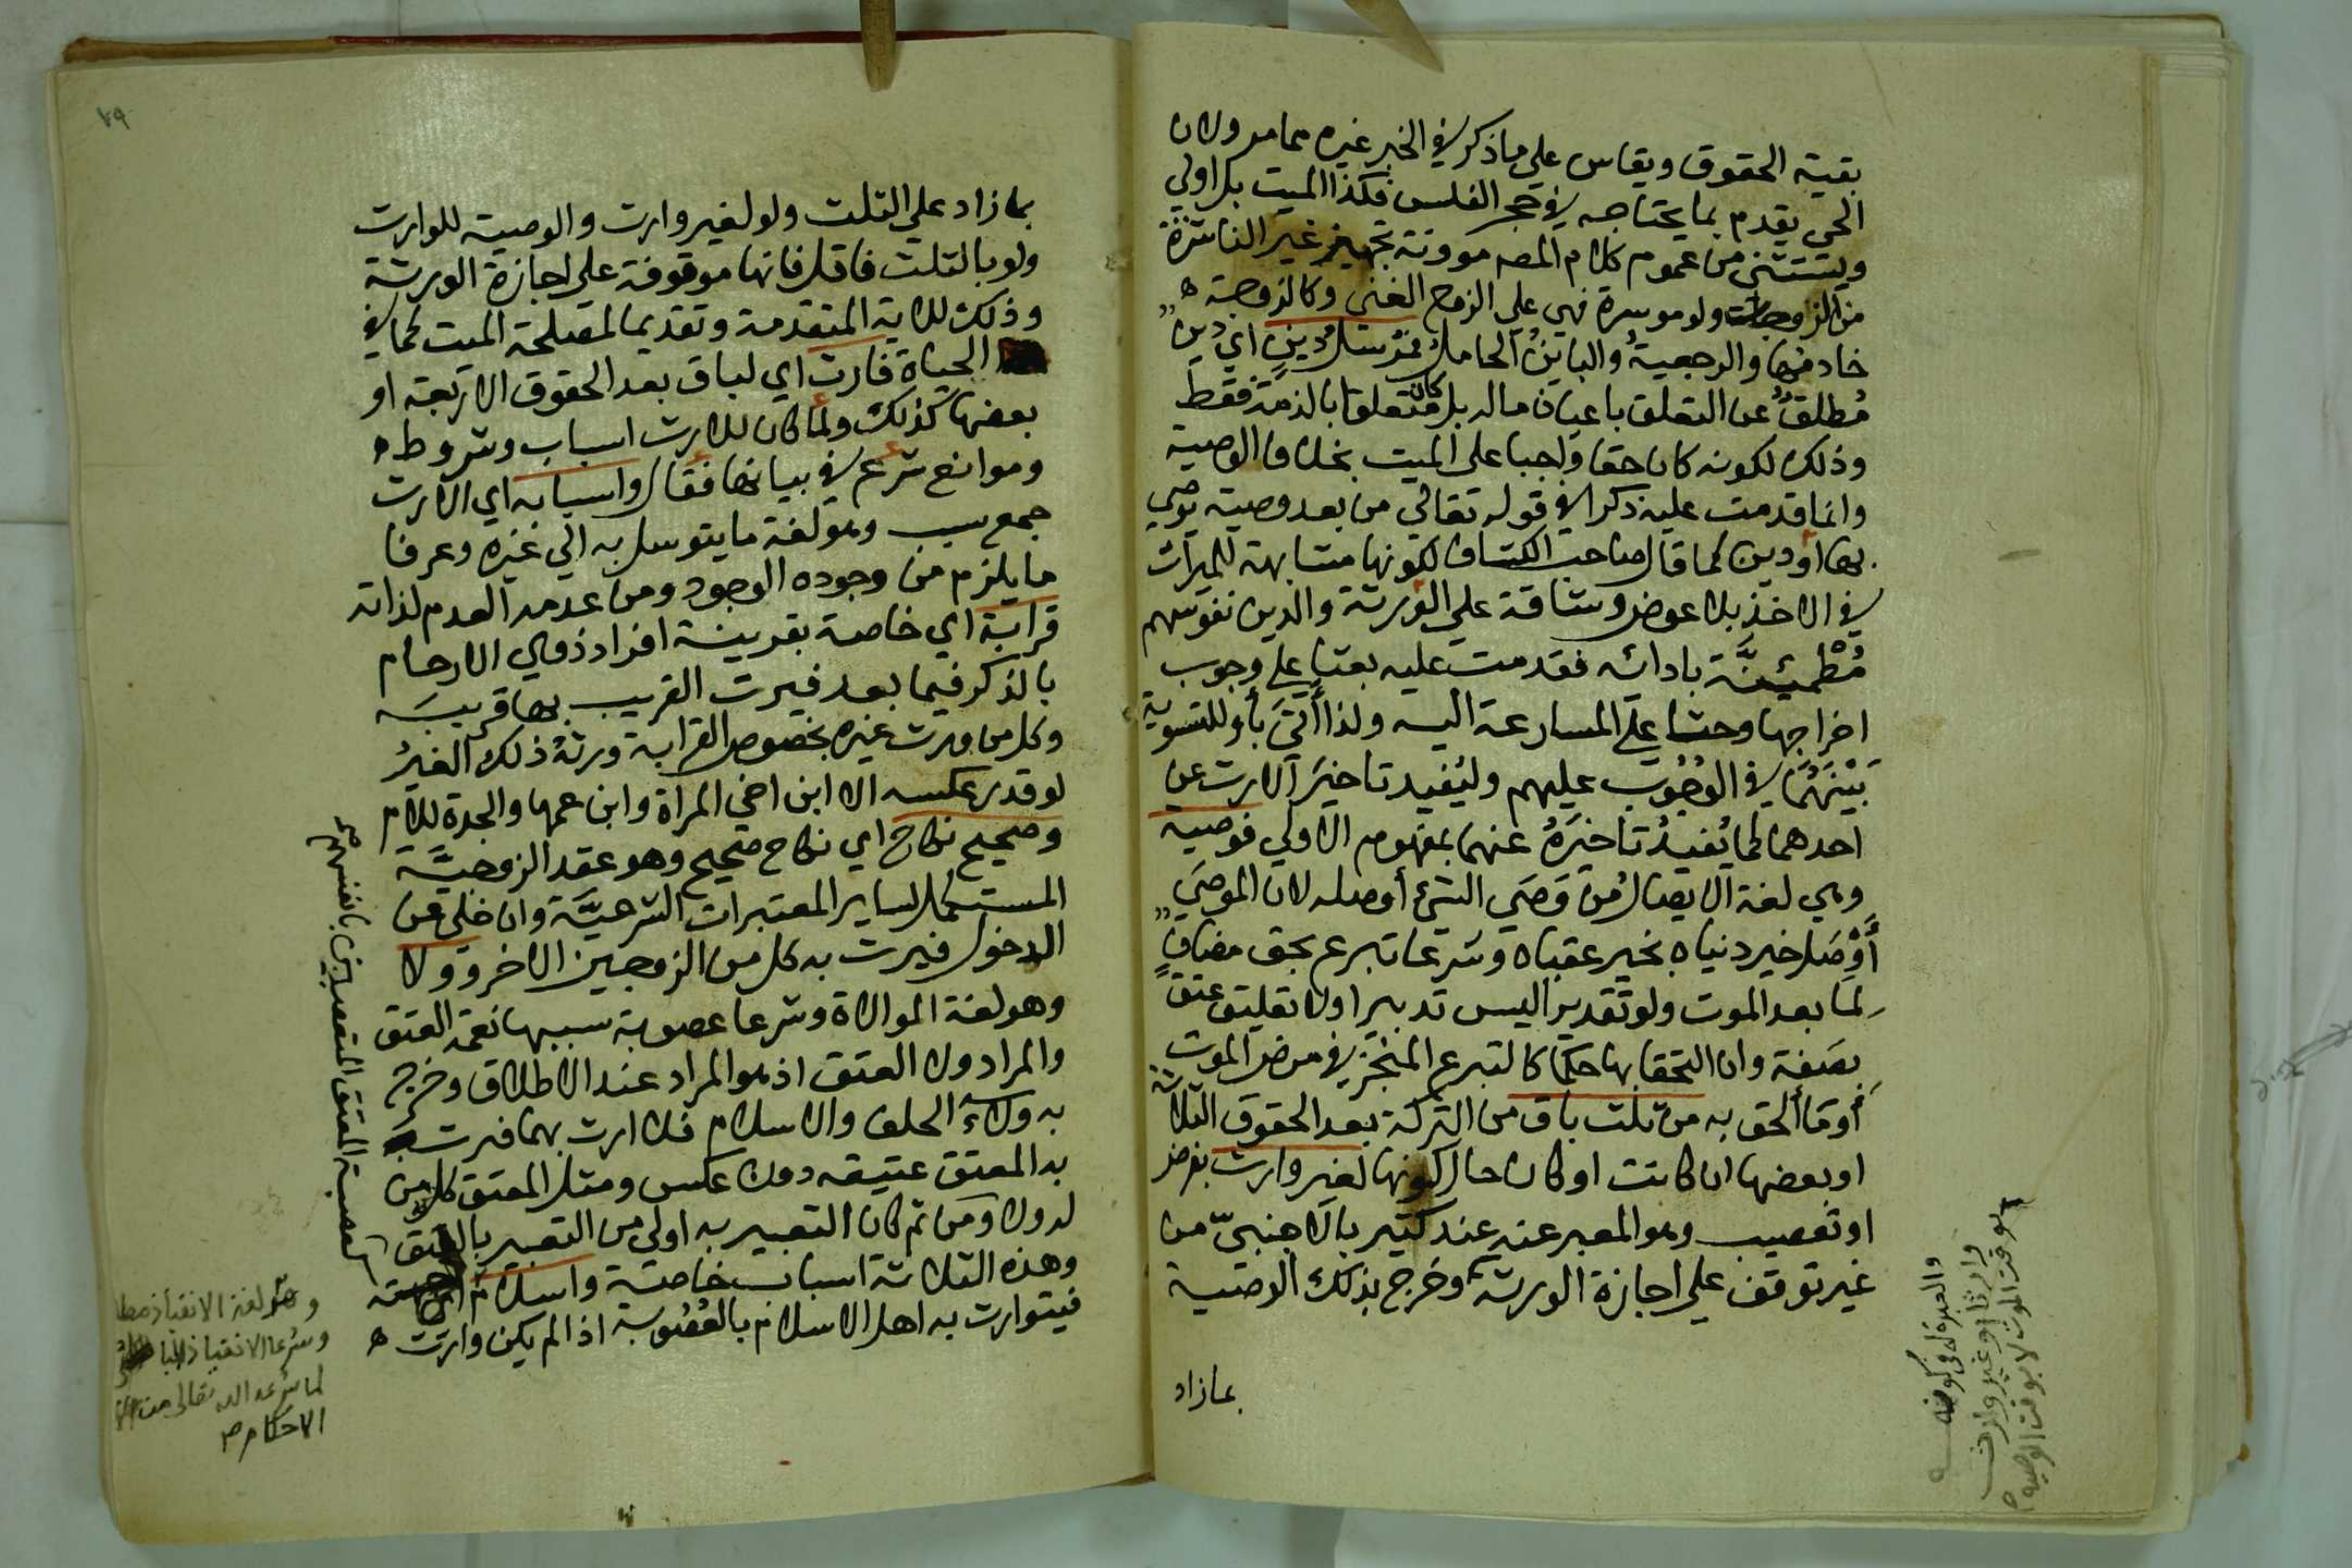 بقية الحقوق ويقاس على ما ذكر في الخبر غيره مما مر ولان
الحي يقدم بما يحتاجه في حجر الفلس فكذا الميت بل اولي
ويستثنى من عموم كلام المص موونة تجهيز غير الناشزة
من الزوجات ولو موسرة فهي علي الزوج الغني وكالزوجة
خادمتها والرجعية والباين الحامل فمرسل دين اي دين
مطلق عن التعلق باعيان ماله بل كان متعلقا بالذمة فقط
وذلك لكونه كان حقا واجبا على الميت بخلاف الوصية
وانما قدمت عليه ذكرا في قوله تعالي من بعد وصية يوصي
بها او دين كما قال صاحب الكشاف لكونها مشابهة للميراث
في الاخذ بلا عوض وشاقة علي الورثة والدين نفوسهم
مُطْمَئِنَّة بادائه فقدمت عليه بعثا علي وجوب
اخراجها وحثا علي المسارعة اليه ولذا أتى بأو للتسوية
بَيْنَهُمَا في الوُجُوب عليهم وليفيد تاخير الارث عن
احدهما كما يُفيدُ تاخيرَهُ عنهما بمفهوم الاولي فوصية
وهي لغة الايصال من وَصَي الشئ أوصله لان الموصَي
أَوْصَل خير دنياه بخير عقباه وشرعا تبرع بحق مضاف
لما بعد الموت ولو تقديرا ليس تدبيرا ولا تعليق عتق
بصفة وان التحقا بها حكما كالتبرع المنجز في مرض الموت
أوما ألحق به من ثلث باق من التركة بعد الحقوق الثلاثة
او بعضها ان كانت او كان حال كونها لغير وارث بفرض
او تعصيب وهو المعبر عنه عند كثير بالاجنبيّ من
غير توقف علي اجازة الورثة وخرج بذلك الوصية
بمازاد
والعبرة في كونه
وارثا او غير وارث
بوقت الموت لا بوقت الوصية
٧٩
بمازاد علي الثلث ولو لغير وارث والوصية للوارث
ولو بالثلث فاقل فانها موقوفة علي اجازة الورثة
وذلك للاية المتقدمة وتقديما لمصلحة الميت كما في
الحياة فارث اي لباق بعد الحقوق الاربعة او
بعضها كذلك ولما كان للارث اسباب وشروط
وموانع شرع في بيانها فقال واسبابه اي الارث
جمع سبب وهو لغة ما يتوسل به الي غيره وعرفا
ما يلزم من وجوده الوجود ومن عدمه العدم لذاته
قرابة اي خاصة بقرينة افراد ذوي الارحام
بالذكر فيما بعد فيرث القريب بها قريبه
وكل من ورث غيره بخصوص القرابة ورثه ذلك الغيرُ
لو قدر عكسه الا ابن اخي المراة وابن عمها والجدة للام
وصحيح نكاح اي نكاح صحيح وهو عقد الزوجيَّة
المستكمل لساير المعتبرات الشرعيَّة وان خلي عن
الدخول فيرث به كل من الزوجين الاخر وولا
وهو لغة الموالاة وشرعا عصوبة سببها نعمة العتق
والمراد ولا العتق اذ هو المراد عند الاطلاق وخرج
به ولاء الحلف والاسلام فلا ارث بهما فيرث
به المعتق عتيقه دون عكس ومثل المعتق كل من
له ولا ومن ثم كان التعبير به اولي من التعبير بالعتق
وهذه الثلاثة اسباب خاصة واسلام
فيتوارث به اهل الاسلام بالعصوبة اذا لم يكن وارث
لعصبة المعتق المتعصبين بانفسهم صح
وهو لغة الانقياد مطلقا
وشرعا الانقياد
لما شرعه الله تعالى من
الاحكام ص